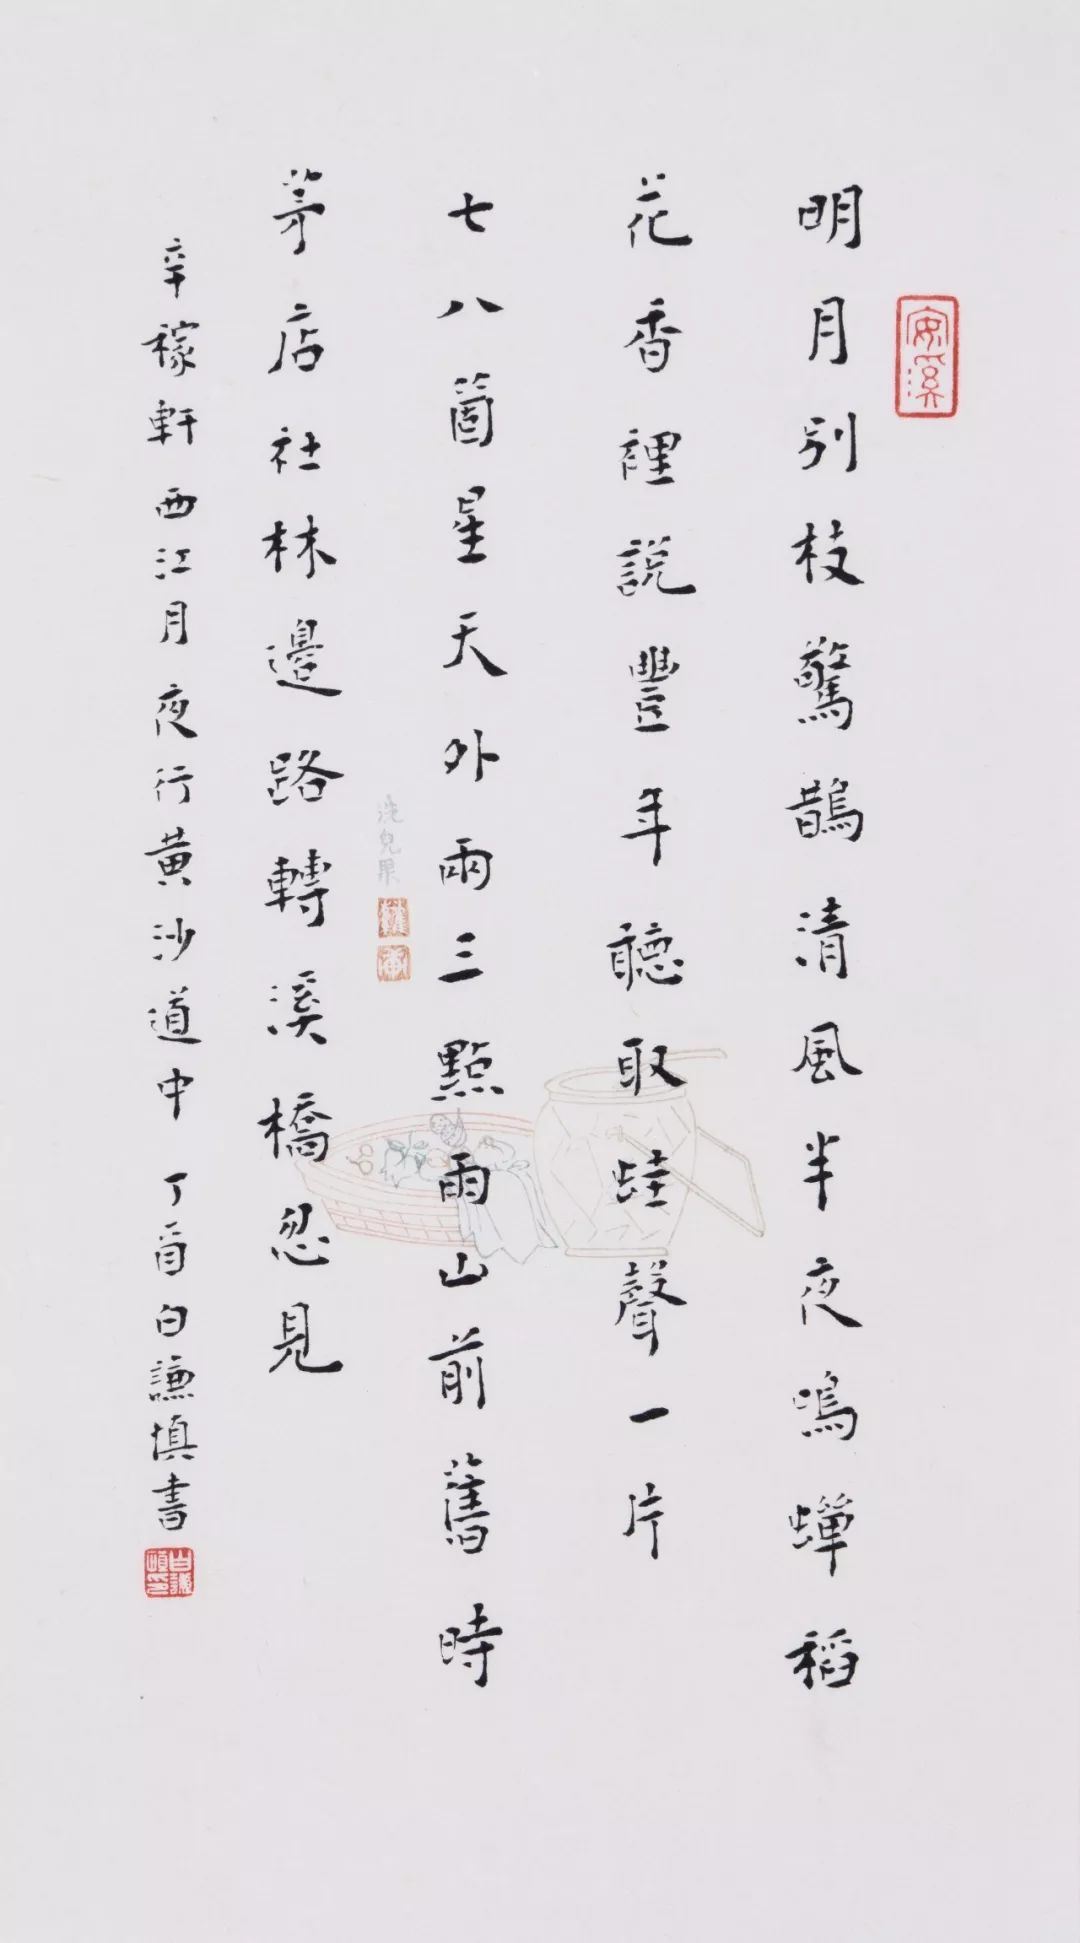 安溪
明月別枝驚鵲清風半夜鳴蟬稻
花香裡說豐年聽取蛙聲一片
七八箇星天外兩三點雨山前舊時
茅店社林邊路轉溪橋忽見
洗兒果
辛稼軒西江月夜行黃沙道中 丁酉白謙慎書
白謙慎印